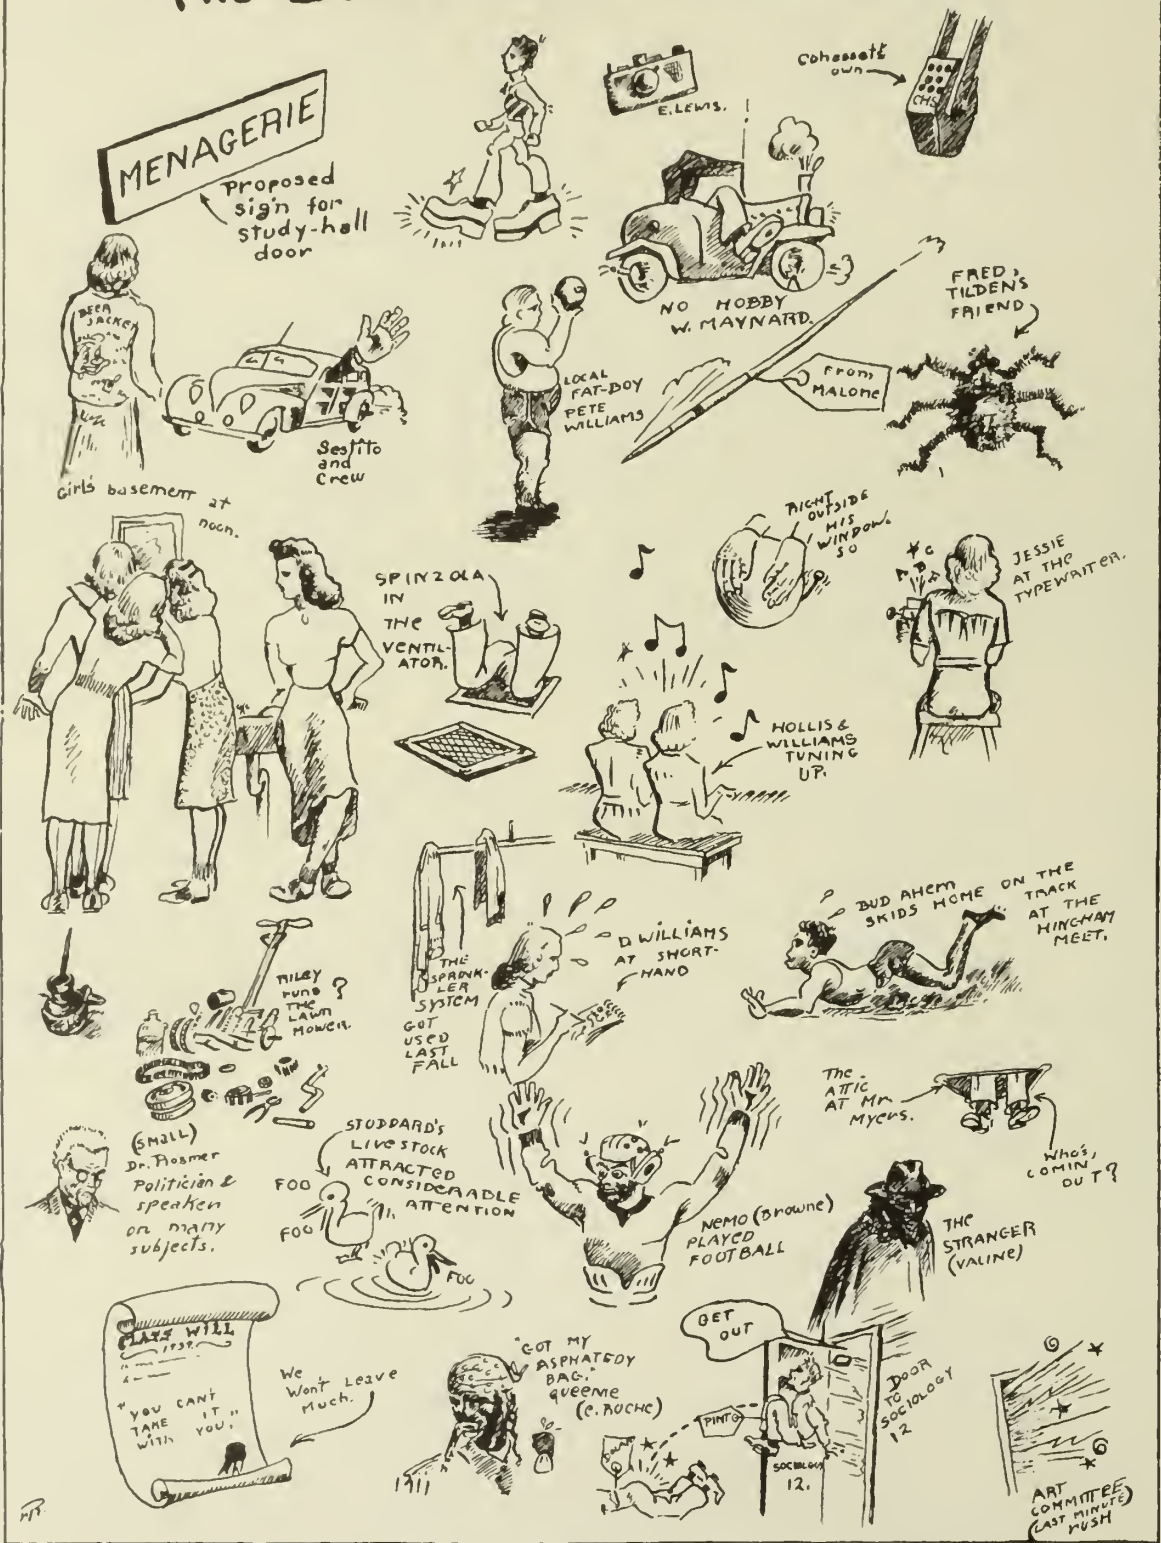 MENAGERIE
Proposed
sign for
study-hall
door
E. LEWIS.
Cohassett's
own
CHS
BEER
JACKET
Sestito
and
Crew
NO HOBBY
W. MAYNARD.
LOCAL
FAT-BOY
PETE
WILLIAMS
From
MALONE
FRED,
TILDEN'S
FRIEND
Girls basement at
noon.
SPINZOLA
IN
THE
VENTIL-
ATOR.
RIGHT
OUTSIDE
HIS
WINDOW.
SO
JESSIE
AT THE
TYPEWRITER.
HOLLIS &
WILLIAMS
TUNING
UP.
THE
SPRINK-
LER
SYSTEM
GOT
USED
LAST
FALL
D. WILLIAMS
AT SHORT-
HAND
BUD AHERN
SKIDS HOME ON THE
TRACK
AT THE
HINGHAM
MEET.
RILEY
RUNS
THE
LAWN
MOWER.
?
(SMALL)
Dr. Rosmer
Politician &
speaker
on many
subjects.
STODDARD'S
LIVESTOCK
ATTRACTED
CONSIDERABLE
ATTENTION
FOO
FOO
FOO
NEMO (BROWNE)
PLAYED
FOOTBALL
The
ATTIC
AT Mr.
Myers.
WHO'S,
COMIN
OUT?
THE
STRANGER
(VALINE)
CLASS WILL
1939.
"YOU CAN'T
TAKE IT
WITH YOU."
We
Won't Leave
Much.
"GOT MY
ASPHATEDY
BAG."
QUEENIE
(C. ROCHE)
GET
OUT
PINTO
SOCIOLOGY
12.
DOOR
TO
SOCIOLOGY
12
ART
COMMITTEE
(LAST MINUTE)
RUSH